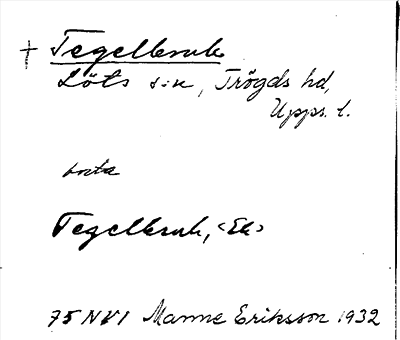 † Tegelbruk
Löts s:n, Trögds hd,
Upps. l.
borta
Tegelbruk, <Ek>
75 NV1 Manne Eriksson 1932